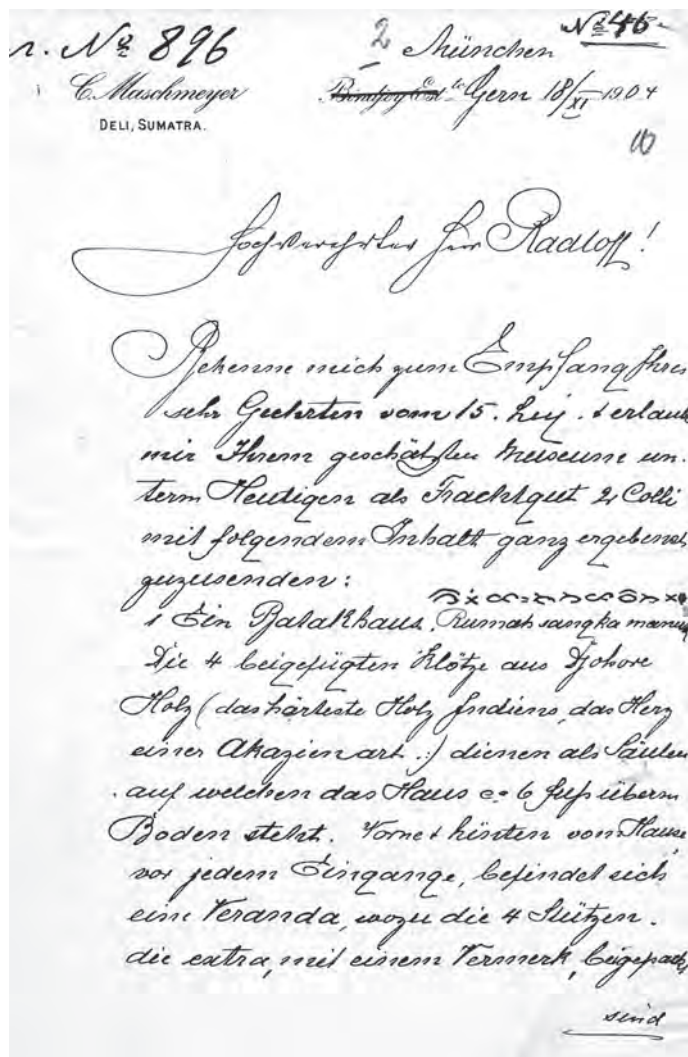 r. No 896
2
No 46
München
C. Maschmeyer
Gern 18/XI 1904
DELI, SUMATRA.
10
Hochverehrter Herr Radloff!
Bekenne mich zum Empfang Ihres
sehr Geehrten vom 15. & erlaube
mir Ihrem geschätzten Museum un-
term Heutigen als Frachtgut 2 Colli
mit folgendem Inhalt ganz ergebenst
zuzusenden:
1 Ein Batakhaus, Rumah sangka manuk
Die 4 beigefügten Klötze aus Djohore
Holz (das härteste Holz Indiens, das Herz
einer Akazienart.) dienen als Säulen
auf welchen das Haus ca 6 Fuß überm
Boden steht. Vorne & hinten vom Hause
vor jedem Eingange, befindet sich
eine Veranda, wozu die 4 Stützen.
die extra, mit einem Vermerk, beigepackt
sind